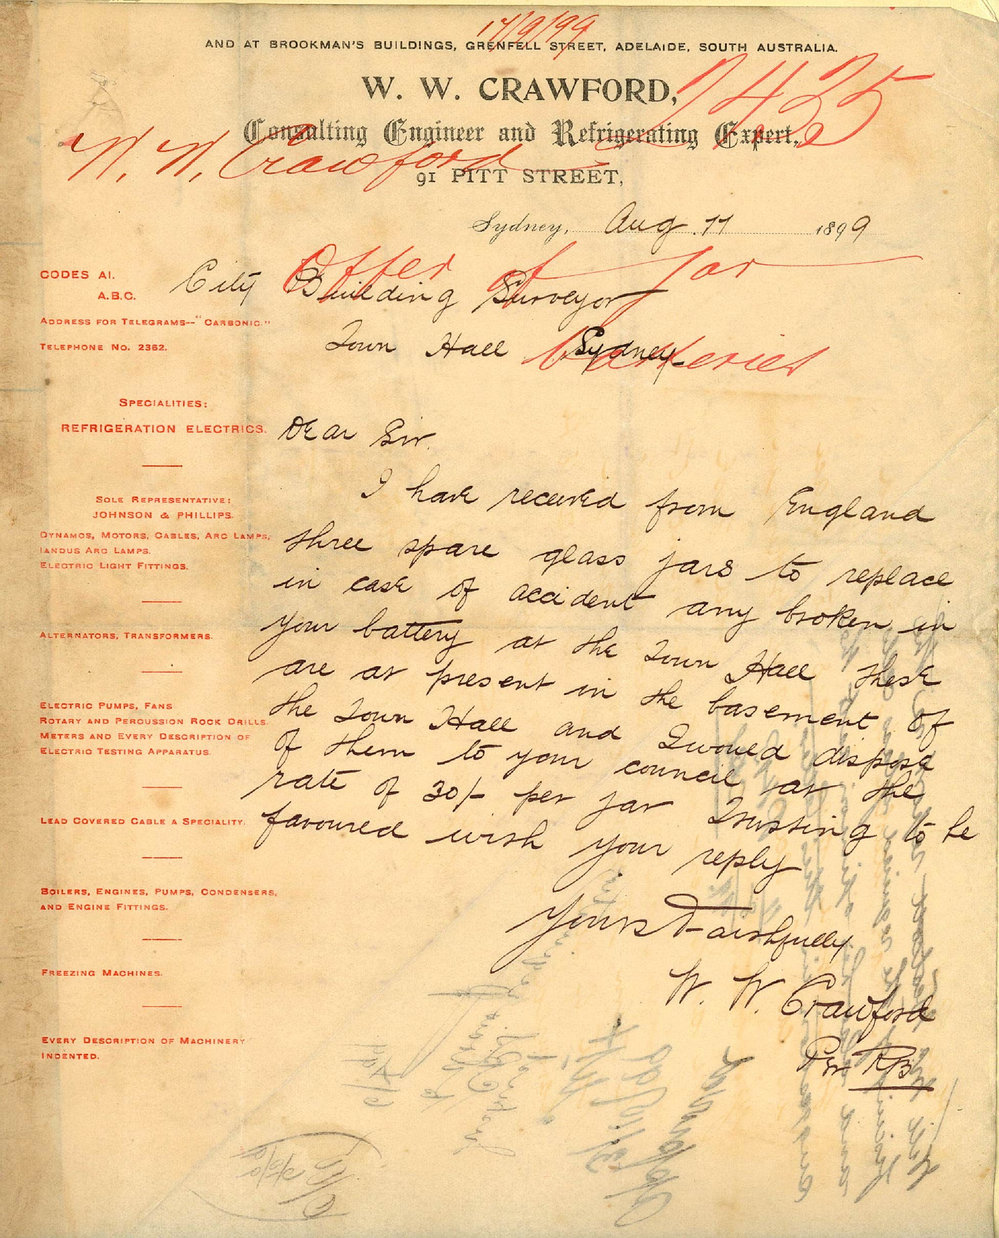 17/9/99
AND AT BROOKMAN'S BUILDINGS, GRENFELL STREET, ADELAIDE, SOUTH AUSTRALIA.
W. W. CRAWFORD,
Consulting Engineer and Refrigerating Expert,
W. W. Crawford
91 PITT STREET,
Sydney, Aug. 11 1899
Offer of Jar
Batteries
City Building Surveyor
Town Hall Sydney
CODES A1.
A.B.C.
ADDRESS FOR TELEGRAMS--"CARBONIC."
TELEPHONE NO. 2362.
SPECIALITIES:
REFRIGERATION ELECTRICS.
SOLE REPRESENTATIVE:
JOHNSON & PHILLIPS.
DYNAMOS, MOTORS, CABLES, ARC LAMPS,
IANDUS ARC LAMPS.
ELECTRIC LIGHT FITTINGS.
ALTERNATORS, TRANSFORMERS.
ELECTRIC PUMPS, FANS
ROTARY AND PERCUSSION ROCK DRILLS.
METERS AND EVERY DESCRIPTION OF
ELECTRIC TESTING APPARATUS.
LEAD COVERED CABLE A SPECIALITY.
BOILERS, ENGINES, PUMPS, CONDENSERS,
AND ENGINE FITTINGS.
FREEZING MACHINES.
EVERY DESCRIPTION OF MACHINERY
INDENTED.
Dear Sir.
I have received from England
three spare glass jars to replace
in case of accident any broken in
your battery at the Town Hall these
are at present in the basement of
the Town Hall and I would dispose
of them to your council at the
rate of 30/- per jar Trusting to be
favoured with your reply
Yours Faithfully
W. W. Crawford
Per RB